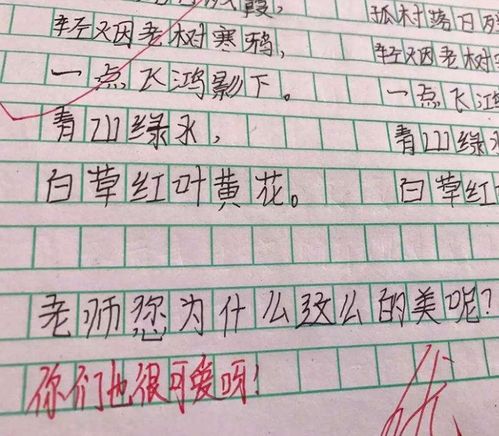 霞,
轻烟老树寒鸦,
一点飞鸿影下。
青山绿水,
白草红叶黄花。
孤村落日残
轻烟老树寒
一点飞鸿
青山绿水
白草红
老师您为什么这么的美呢?
你们也很可爱呀!
优